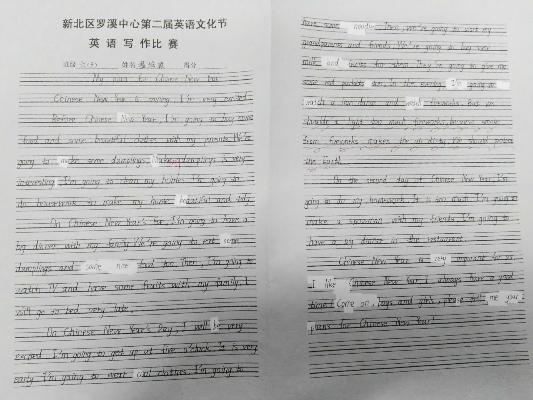 新北区罗溪中心第二届英语文化节
英语写作比赛
班级 六(3) 姓名 得分
My plan for Chinese New Year
Chinese New Year is coming, I'm very excited.
Before Chinese New Year, I'm going to buy some
food and some beautiful clothes with my parents. We're
going to make some dumplings. Making dumplings is very
interesting. I'm going to clean my house. I'm going to
do housework to make my home beautiful and tidy.
On Chinese New Year's Eve, I'm going to have a
big dinner with my family. We're going to eat some
dumplings and some nice food too. Then, I'm going to
watch TV and have some fruits with my family. I
will go to bed very late.
On Chinese New Year's Day, I will be very
excited. I'm going to get up at five o'clock. It is very
early. I'm going to wear cool clothes. I'm going to
have some noodles. Then, we're going to visit my
grandparents and friends. We're going to buy some
milk and fruits for them. They're going to give me
some red packets too. In the evening, I'm going to
watch a lion dance and watch fireworks. But we
shouldn't light too many fireworks, because smoke
from fireworks makes the air dirty. We should protect
the Earth.
On the second day of Chinese New Year, I'm
going to do my homework. It is too much. I'm going to
make a snowman with my friends. I'm going to
have a big dinner in the restaurant.
Chinese New Year is very important for us.
I like Chinese New Year. I always have a good
time! Come on, boys and girls, please tell me your
plans for Chinese New Year!